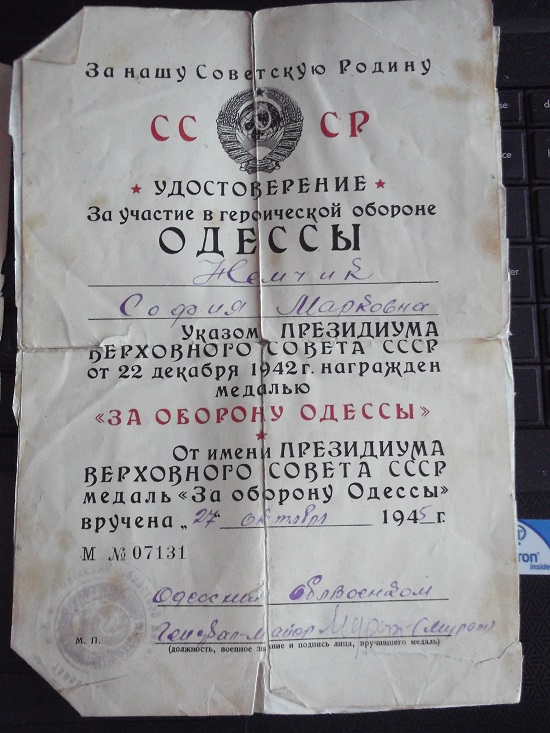 За нашу Советскую Родину
СССР
УДОСТОВЕРЕНИЕ
За участие в героической обороне
ОДЕССЫ
Немчик
София Марковна
Указом ПРЕЗИДИУМА
ВЕРХОВНОГО СОВЕТА СССР
от 22 декабря 1942 г. награжден
медалью
«ЗА ОБОРОНУ ОДЕССЫ»
От имени ПРЕЗИДИУМА
ВЕРХОВНОГО СОВЕТА СССР
медаль «За оборону Одессы»
вручена „27" октября 1945 г.
М № 07131
Одесский Облвоенком
Генерал-Майор
М. П.
(должность, военное звание и подпись лица, вручившего медаль)
inside